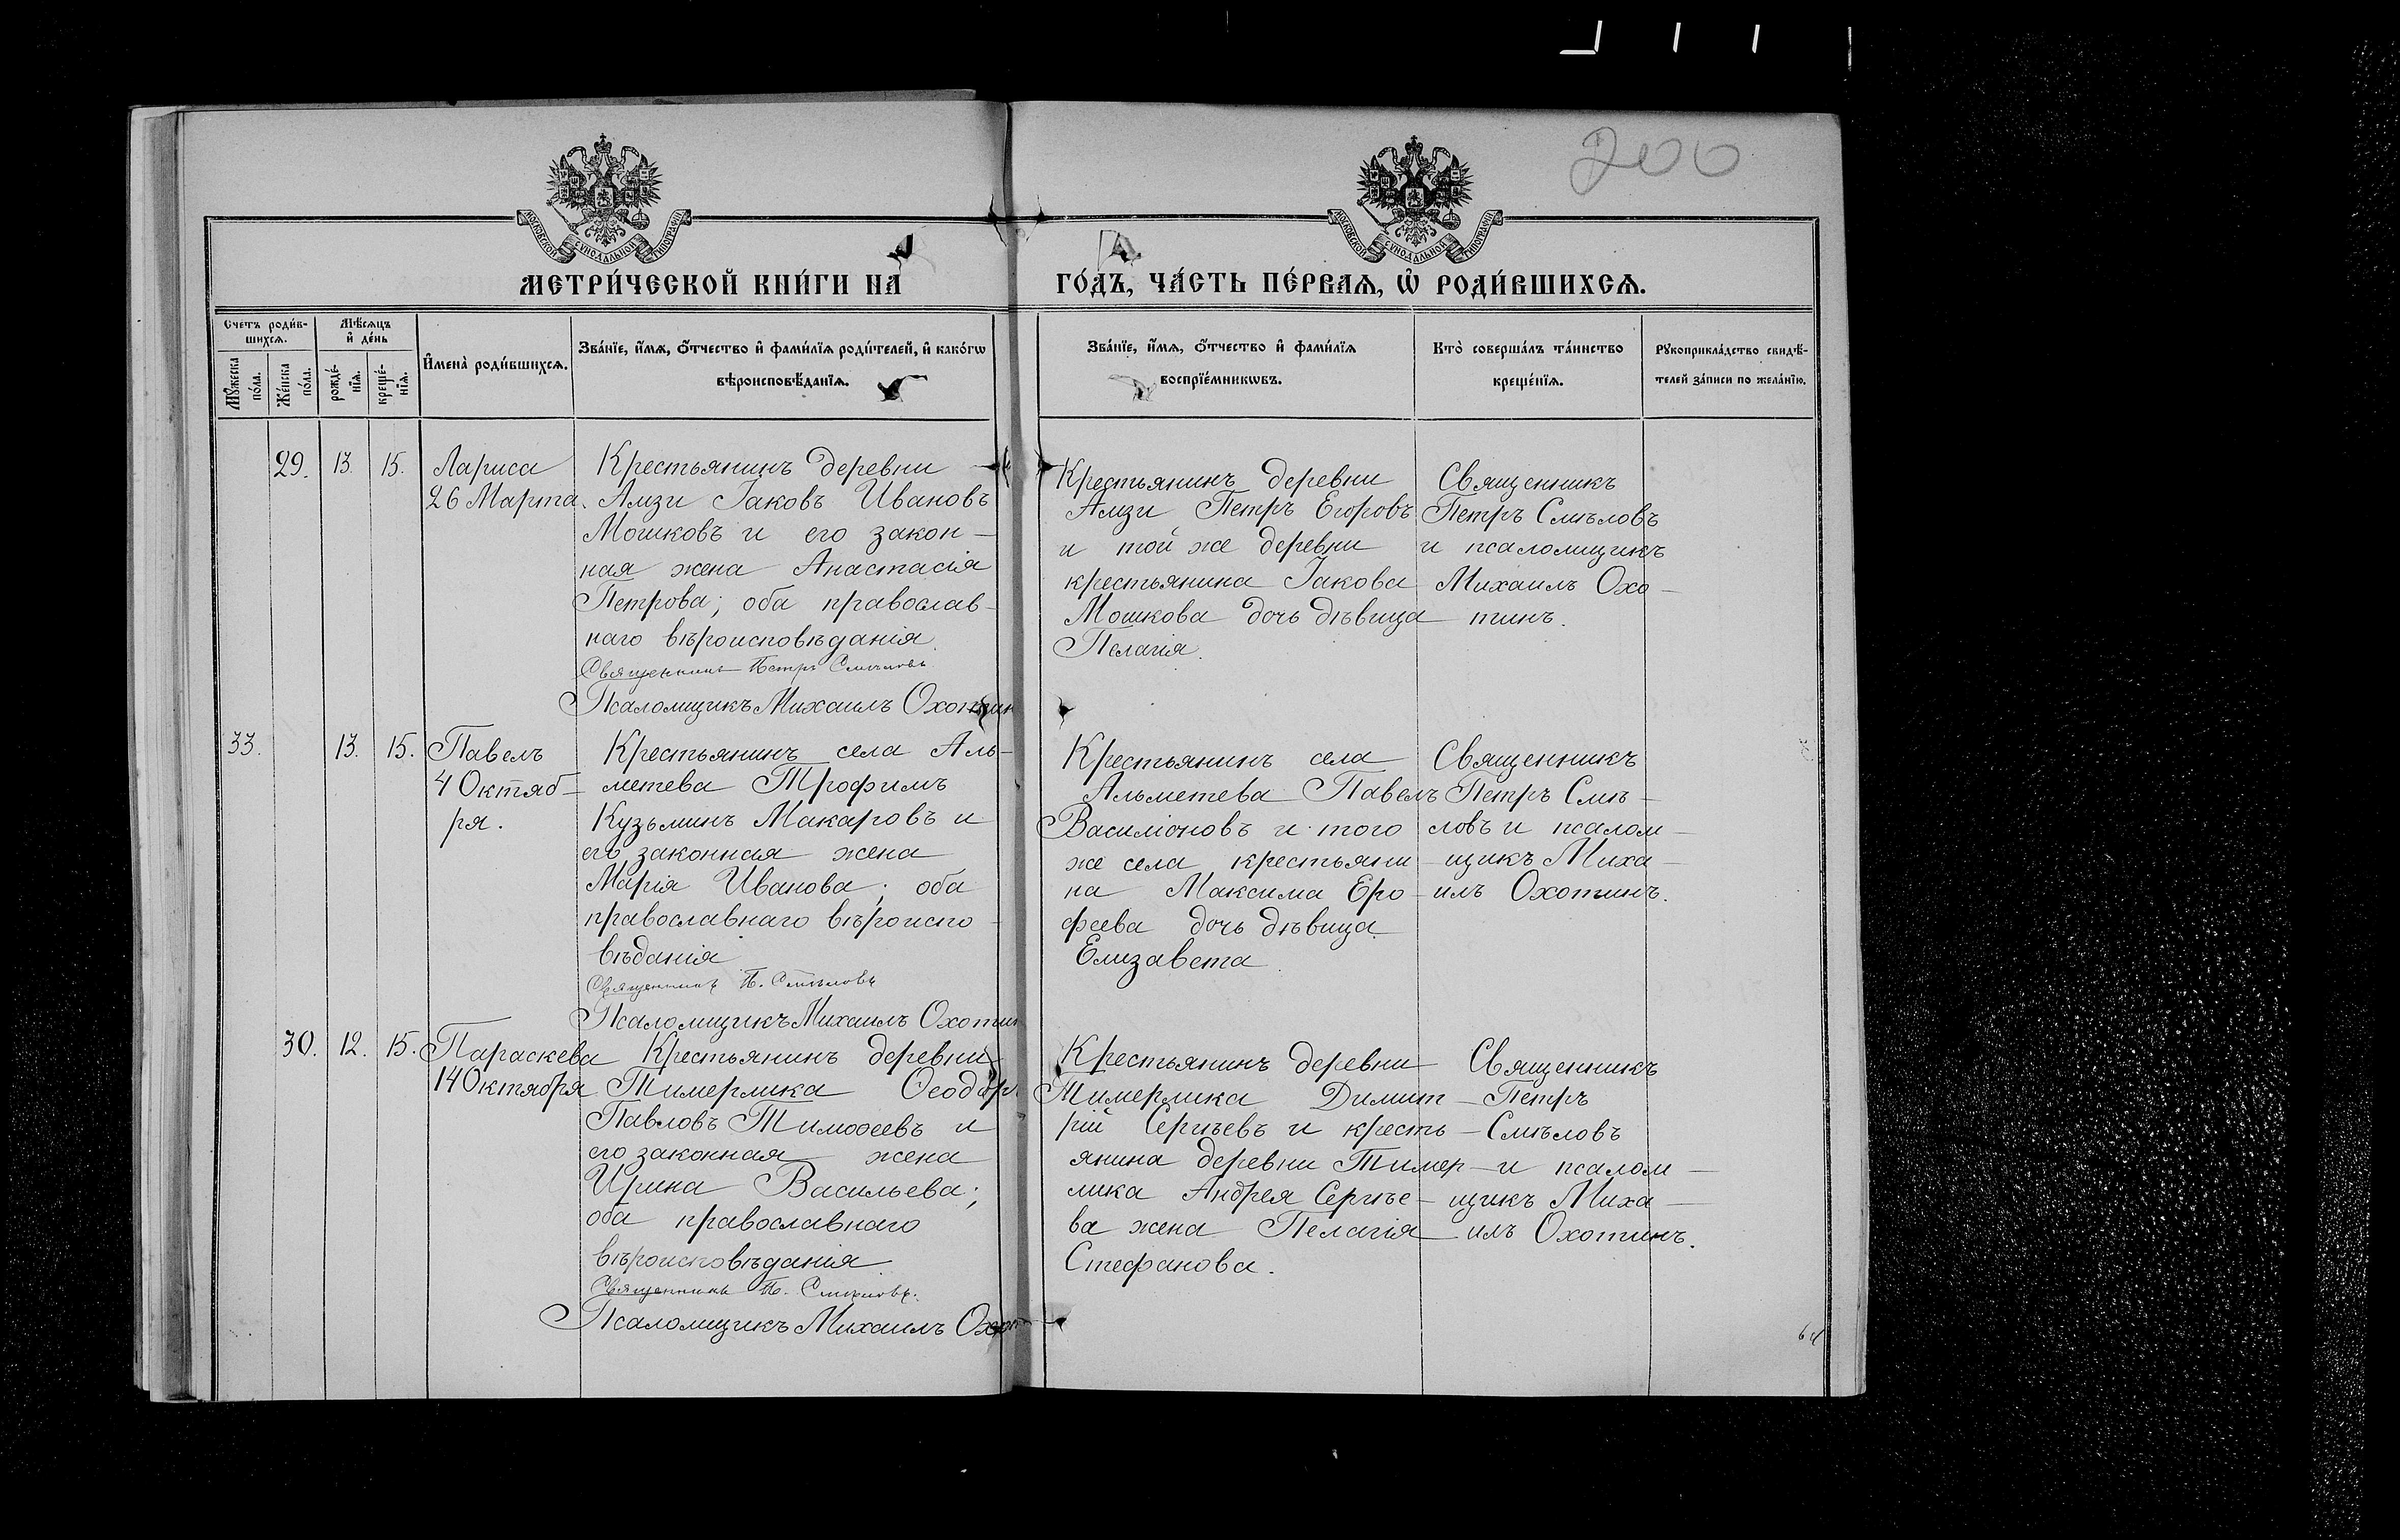 200
МОСКОВСКОЙ СѴНОДАЛЬНОЙ ТИПОГРАФІИ
МОСКОВСКОЙ СѴНОДАЛЬНОЙ ТИПОГРАФІИ
МЕТРИ́ЧЕСКОЙ КНИ́ГИ НА
ГО́ДЪ, ЧА́СТЬ ПЕ́РВАѦ, Ѡ҆ РОДИ́ВШИХСѦ.
Счетъ роди́в-
шихсѧ.
Мꙋ́жеска
по́ла.
Же́нска
по́ла.
Мѣ́сѧцъ
и҆ де́нь
рожде́-
нїѧ.
креще́-
нїѧ.
И҆мена̀ роди́вшихсѧ.
Зва́нїе, и҆́мѧ, ѻ҆́тчество и҆ фами́лїѧ роди́телей, и҆ како́гѡ
вѣроисповѣ́данїѧ.
Зва́нїе, и҆́мѧ, ѻ҆́тчество и҆ фами́лїѧ
воспрїе́мникѡвъ.
Кто̀ соверша́лъ та́инство
креще́нїѧ.
Рꙋкоприкла́дство свидѣ́-
телей за́писи по жела́нїю.
29.
13.
15.
Лариса
26 Марта.
Крестьянинъ деревни
Амзи Іаковъ Ивановъ
Мошковъ и его закон-
ная жена Анастасія
Петрова; оба православ-
наго вѣроисповѣданія.
Священникъ Петръ Смѣловъ
Псаломщикъ Михаилъ Охотин
Крестьянинъ деревни
Амзи Петръ Егоровъ
и той же деревни
крестьянина Іакова
Мошкова дочь дѣвица
Пелагія.
Священникъ
Петръ Смѣловъ
и псаломщикъ
Михаилъ Охо-
тинъ.
33.
13.
15.
Павелъ
4 Октяб-
ря.
Крестьянинъ села Аль-
метева Трофимъ
Кузьминъ Макаровъ и
его законная жена
Марія Иванова; оба
православнаго вѣроиспо-
вѣданія
Священникъ П. Смѣловъ
Псаломщикъ Михаилъ Охотин
Крестьянинъ села
Альметева Павелъ
Василіоновъ и того
же села крестьяни-
на Максима Еро-
феева дочь дѣвица
Елизавета.
Священникъ
Петръ Смѣ-
ловъ и псалом-
щикъ Миха-
илъ Охотинъ.
30.
12.
15.
Параскева
14 Октября
Крестьянинъ деревни
Тимерлика Ѳеодоръ
Павловъ Тимоѳеевъ и
его законная жена
Ирина Васильева;
оба православнаго
вѣроисповѣданія
Священникъ П. Смѣловъ.
Псаломщикъ Михаилъ Охот
Крестьянинъ деревни
Тимерлика Димит-
рій Сергѣевъ и кресть-
янина деревни Тимер-
лика Андрея Сергѣе-
ва жена Пелагія
Стефанова.
Священникъ
Петръ
Смѣловъ
и псалом-
щикъ Миха-
илъ Охотинъ.